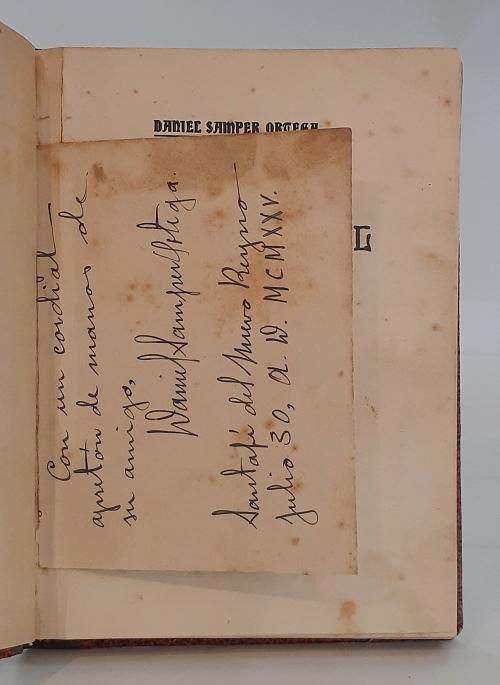 DANIEL SAMPER ORTEGA
L
Con un cordial
apretón de manos de
su amigo,
Daniel Samper Ortega.
Santafé del Nuevo Reyno
julio 30, a. D. MCMXXV.